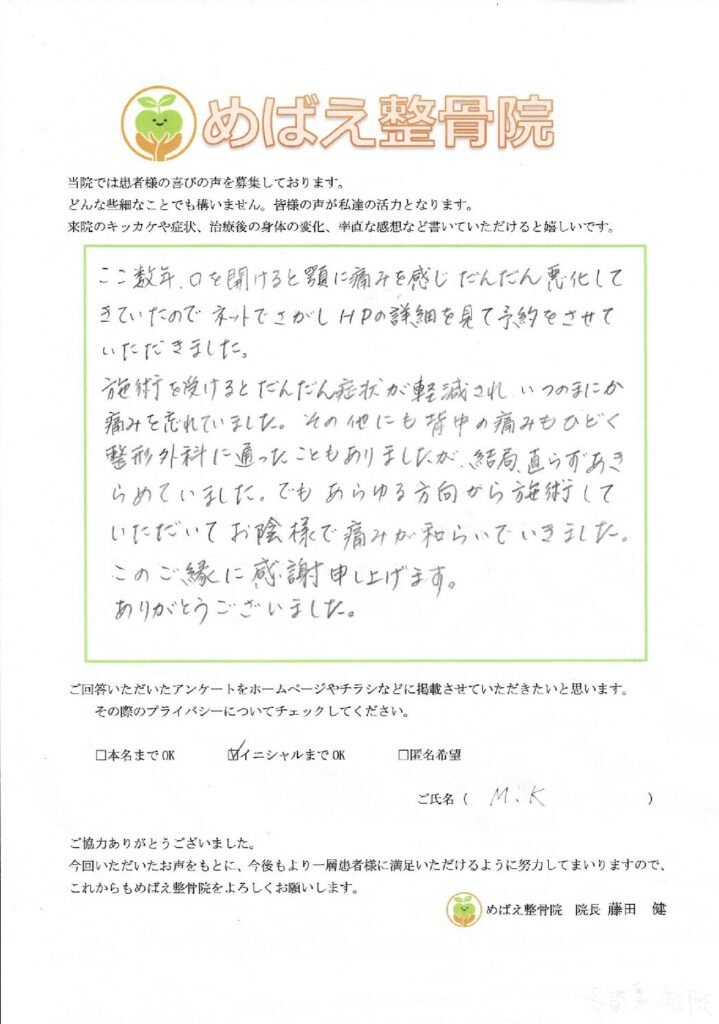 めばえ整骨院
当院では患者様の喜びの声を募集しております。
どんな些細なことでも構いません。皆様の声が私達の活力となります。
来院のキッカケや症状、治療後の身体の変化、率直な感想など書いていただけると嬉しいです。
ここ数年、口を開けると顎に痛みを感じだんだん悪化して
きていたのでネットでさがしHPの詳細を見て予約をさせて
いただきました。
施術を受けるとだんだん症状が軽減され、いつのまにか
痛みを忘れていました。その他にも背中の痛みもひどく
整形外科に通ったこともありましたが、結局、直らずあき
らめていました。でもあらゆる方向から施術して
いただいてお陰様で痛みが和らいでいきました。
このご縁に感謝申し上げます。
ありがとうございました。
ご回答いただいたアンケートをホームページやチラシなどに掲載させていただきたいと思います。
その際のプライバシーについてチェックしてください。
□本名までOK ☑イニシャルまでOK □匿名希望
ご氏名（ M.K ）
ご協力ありがとうございました。
今回いただいたお声をもとに、今後もより一層患者様に満足いただけるように努力してまいりますので、
これからもめばえ整骨院をよろしくお願いします。
めばえ整骨院 院長 藤田 健